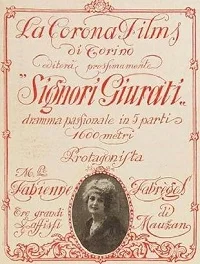 La Corona Films
di Torino
editerà prossimamente
"Signori Giurati„
dramma passionale in 5 parti
1600 metri
Protagonista
M.lle
Fabienne Fabrèges
Tre grandi
affissi
di
Mauzan